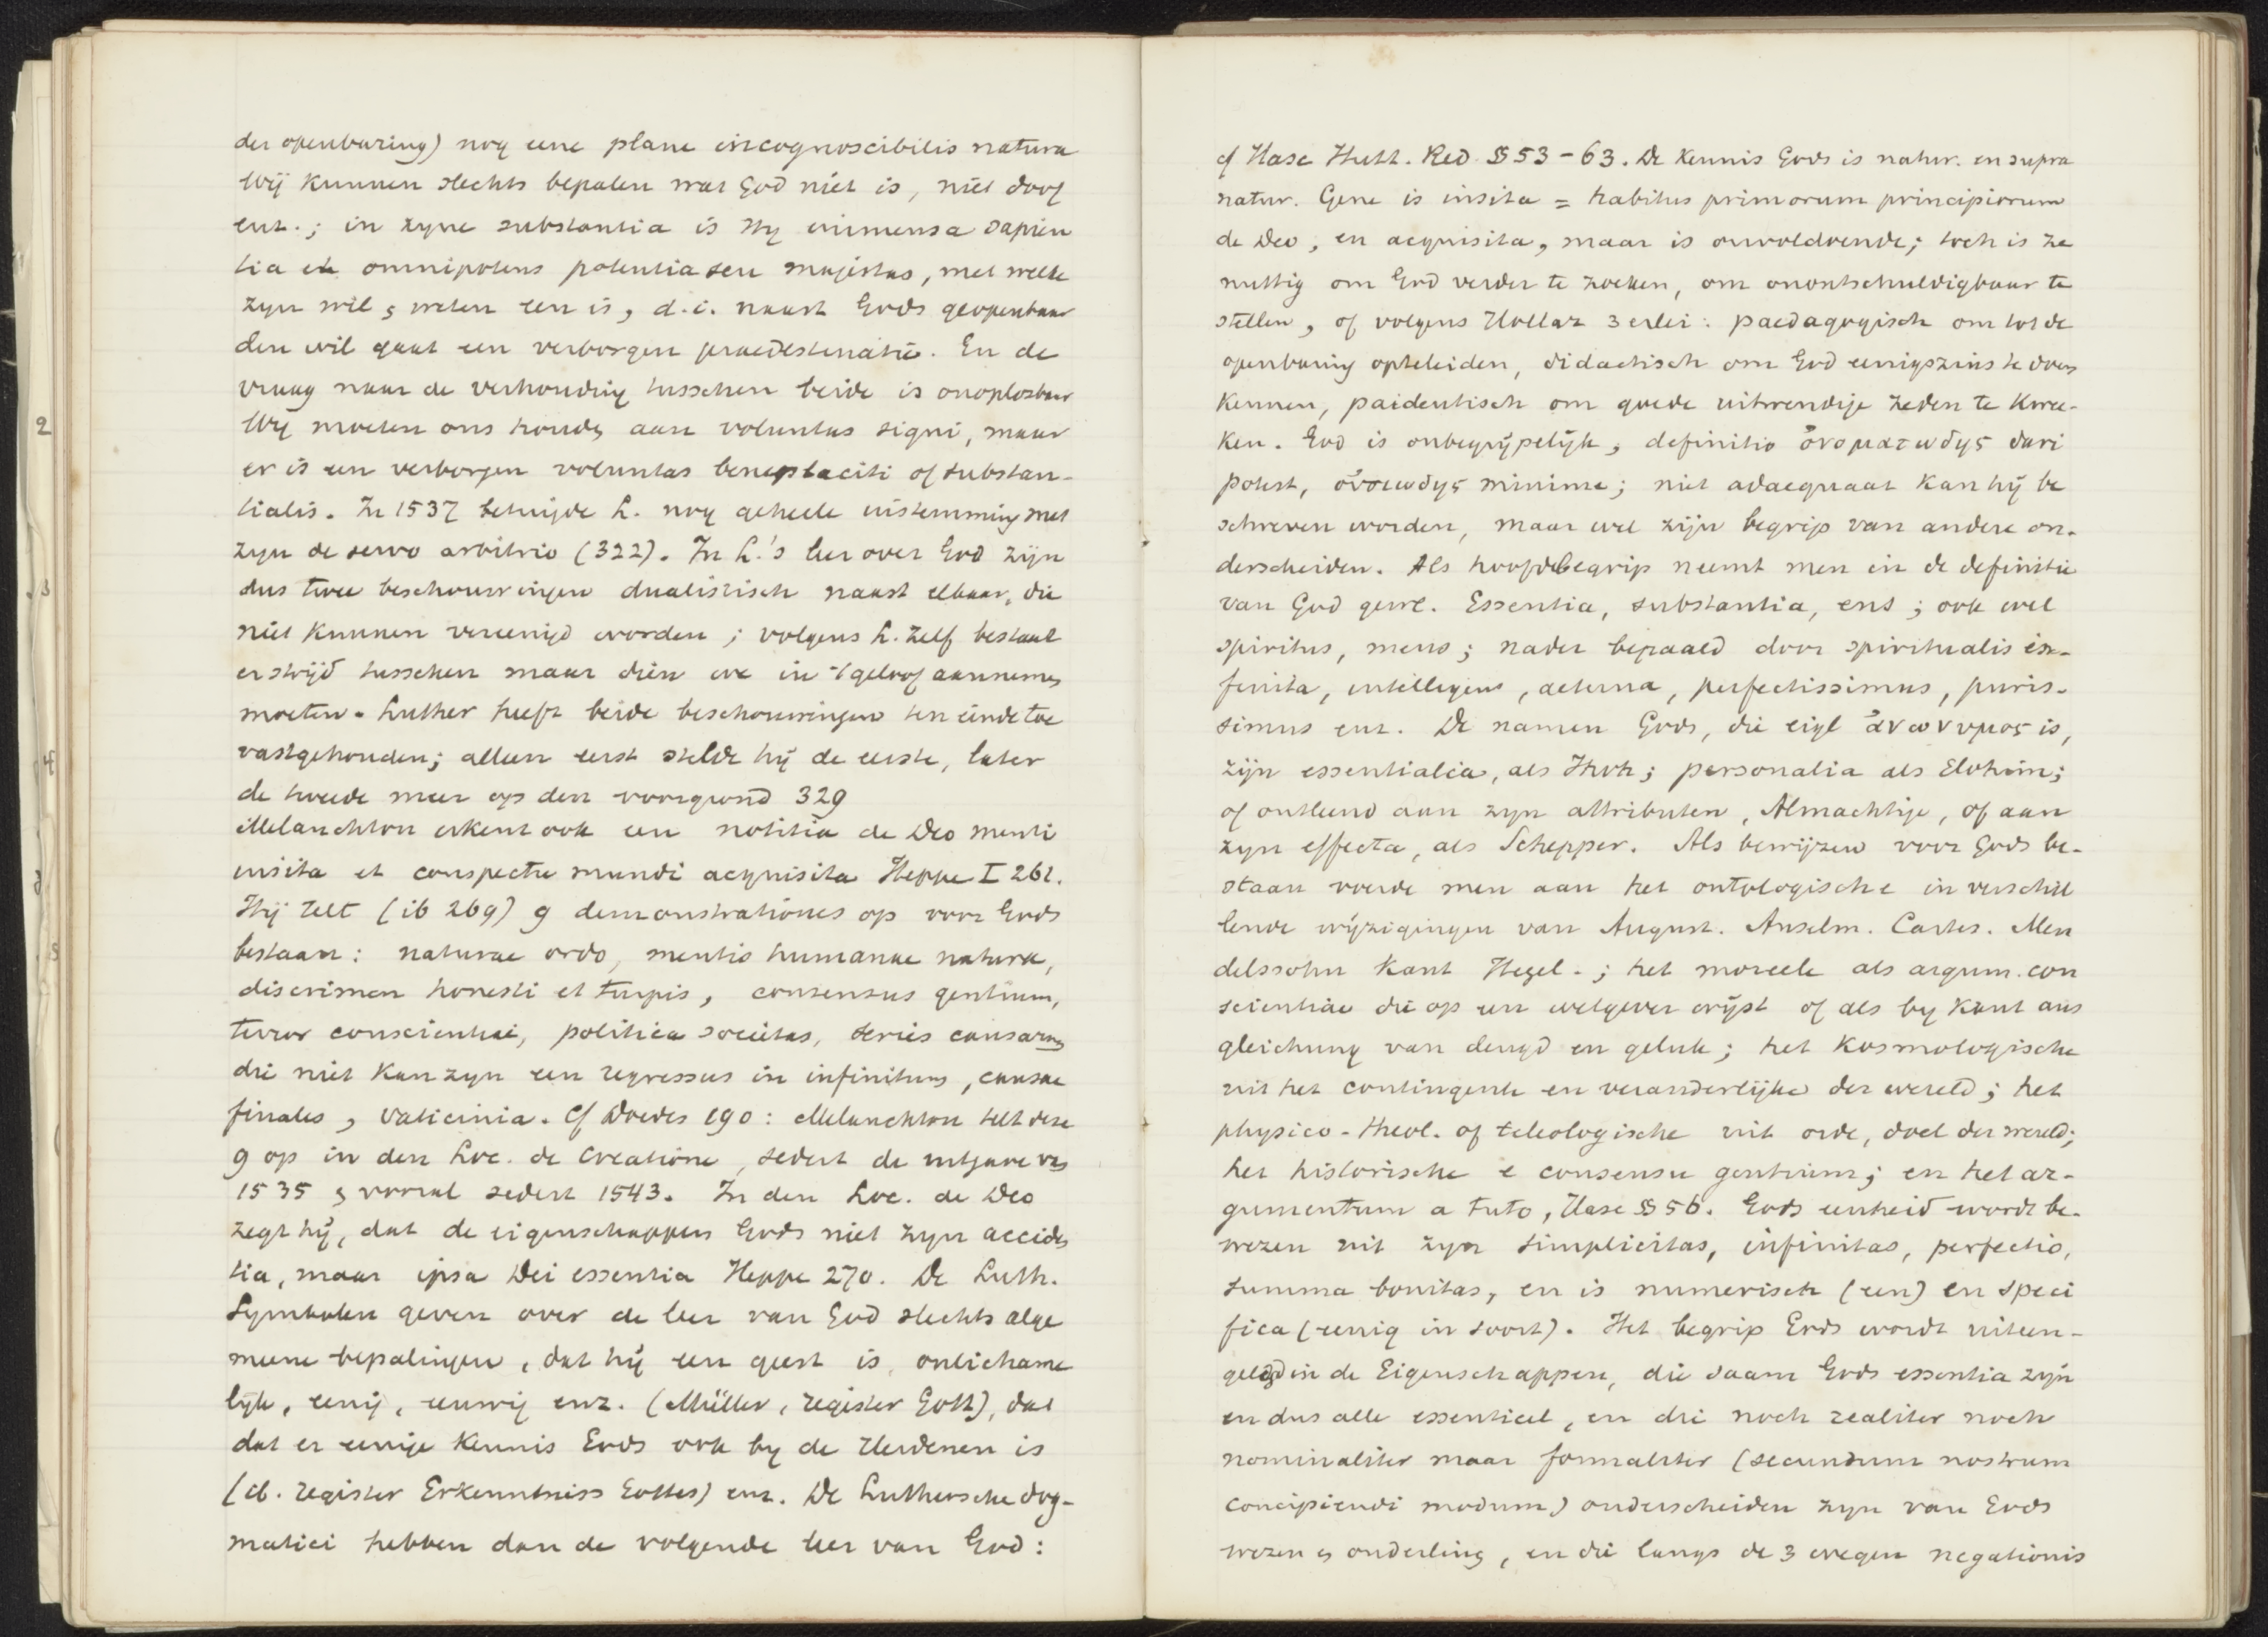 der openbaring) nog eene plane incognoscibilis natura
Wij kunnen slechts bepalen wat God niet is, niet doof
enz.; in zyne substantia is Hy immensa sapien
tia et omnipotens potentia seu majestas, met welke
zyn wil & weten een is, d.i. naast Gods geopenbaar
den wil gaat een verborgen praedestinatie. En de
vraag naar de verhouding tusschen beide is onoplosbaar
Wy moeten ons houden aan voluntas signi, maar
er is een verborgen voluntas beneplaciti of substan-
tialis. In 1537 betuigde L. nog geheele instemming met
zyn de servo arbitrio (322). In L.'s leer over God zijn
dus twee beschouwingen dualistisch naast elkaar, die
niet kunnen vereenigd worden; volgens L. zelf bestaat
er strijd tusschen maar dien we in 't geloof aannemen
moeten. Luther heeft beide beschouwingen ten einde toe
vastgehouden; alleen eerst stelde hij de eerste, later
de tweede meer op den voorgrond 329
Melanchton erkent ook een notitia de Deo menti
insita et conspectu mundi acquisita Heppe I 261.
Hij telt (ib 269) 9 demonstrationes op voor Gods
bestaan: naturae ordo, mentis humanae natura,
discrimen honesti et turpis, consensus gentium,
terror conscientiae, politica societas, series causarum
die niet kan zyn een regressus in infinitum, causae
finales, vaticinia. Cf Doedes 190: Melanchton telt deze
9 op in den Loc. de Creatione, sedert de uitgave van
1535 & vooral sedert 1543. In den Loc. de Deo
zegt hij, dat de eigenschappen Gods niet zyn acciden
tia, maar ipsa Dei essentia Heppe 270. De Luth.
Symbolen geven over de leer van God slechts alge
meene bepalingen, dat hij een geest is, onlichame
lijk, eenig, eeuwig enz. (Müller, register Gott), dat
dat er eenige kennis Gods ook by de Heidenen is
(ib. register Erkenntniss Gottes) enz. De Luthersche dog-
matici hebben dan de volgende leer van God:
cf Hase Hutt. Red. §§ 53-63. De kennis Gods is natur. en supra
natur. Gene is insita = habitus primorum principiorum
de Deo, en acquisita, maar is onvoldoende; toch is ze
nuttig om God verder te zoeken, om onontschuldigbaar te
stellen, of volgens Hollaz 3 erlei: paedagogisch om tot de
openbaring opteleiden, didactisch om God eenigszins te doen
kennen, paideutisch om goede uitwendige zeden te kwee-
ken. God is onbegrijpelijk, definitio ὀνοματωδης dari
potest, οὐσιωδης minime; niet adaequaat kan hij be
schreven worden, maar wel zijn begrip van andere on-
derscheiden. Als hoofdbegrip neemt men in de definitie
van God gew. Essentia, substantia, ens; ook wel
spiritus, mens; nader bepaald door spiritualis in-
finita, intelligens, aeterna, perfectissimus, puris-
simus enz. De namen Gods, die eigl ἀνωνυμος is,
zijn essentialia, als Jhvh; personalia als Elohim;
of ontleend aan zyn attributen, Almachtige, of aan
zyn effecta, als Schepper. Als bewijzen voor Gods be-
staan voerde men aan het ontologische in verschil
lende wijzigingen van August. Anselm. Cartes. Men
delssohn Kant Hegel.; het moreele als argum. con
scientiae die op een wetgever wijst of als by Kant aus
gleichung van deugd en geluk; het kosmologische
uit het contingente en veranderlijke der wereld; het
physico-theol. of teleologische uit orde, doel der wereld;
het historische e consensu gentium; en het ar-
gumentum a tuto, Hase §§ 56. Gods eenheid wordt be-
wezen uit zyn simplicitas, infinitas, perfectio,
summa bonitas, en is numerisch (een) en speci
fica (eenig in soort). Het begrip Gods wordt uiteen-
gelegd in de Eigenschappen, die saam Gods essentia zyn
en dus alle essentieel, en die noch realiter noch
nominaliter maar formaliter (secundum nostrum
concipiendi modum) onderscheiden zyn van Gods
wezen & onderling, en die langs de 3 wegen negationis
2
3
4
5